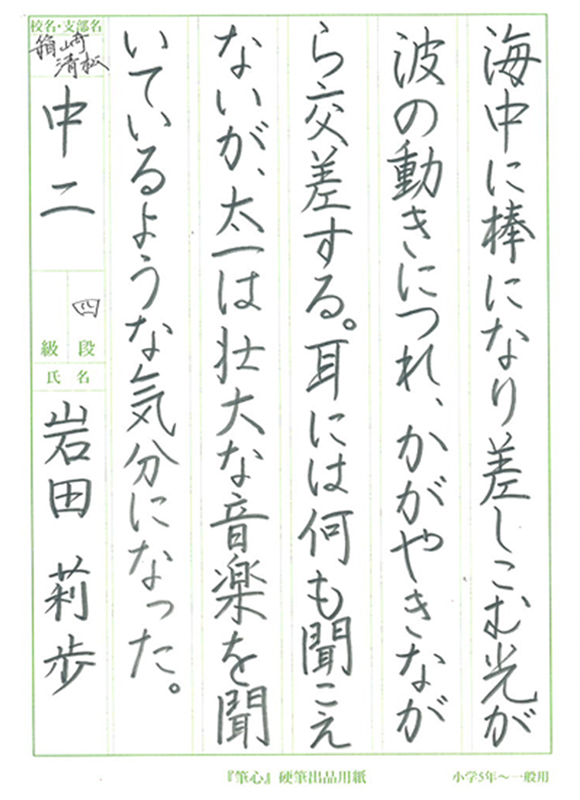 海中に棒になり差しこむ光が
波の動きにつれ、かがやきなが
ら交差する。耳には何も聞こえ
ないが、太一は壮大な音楽を聞
いているような気分になった。
校名・支部名
箱崎
清松
中二
四
級 段
氏名
岩田 莉歩
『筆心』硬筆出品用紙
小学5年〜一般用